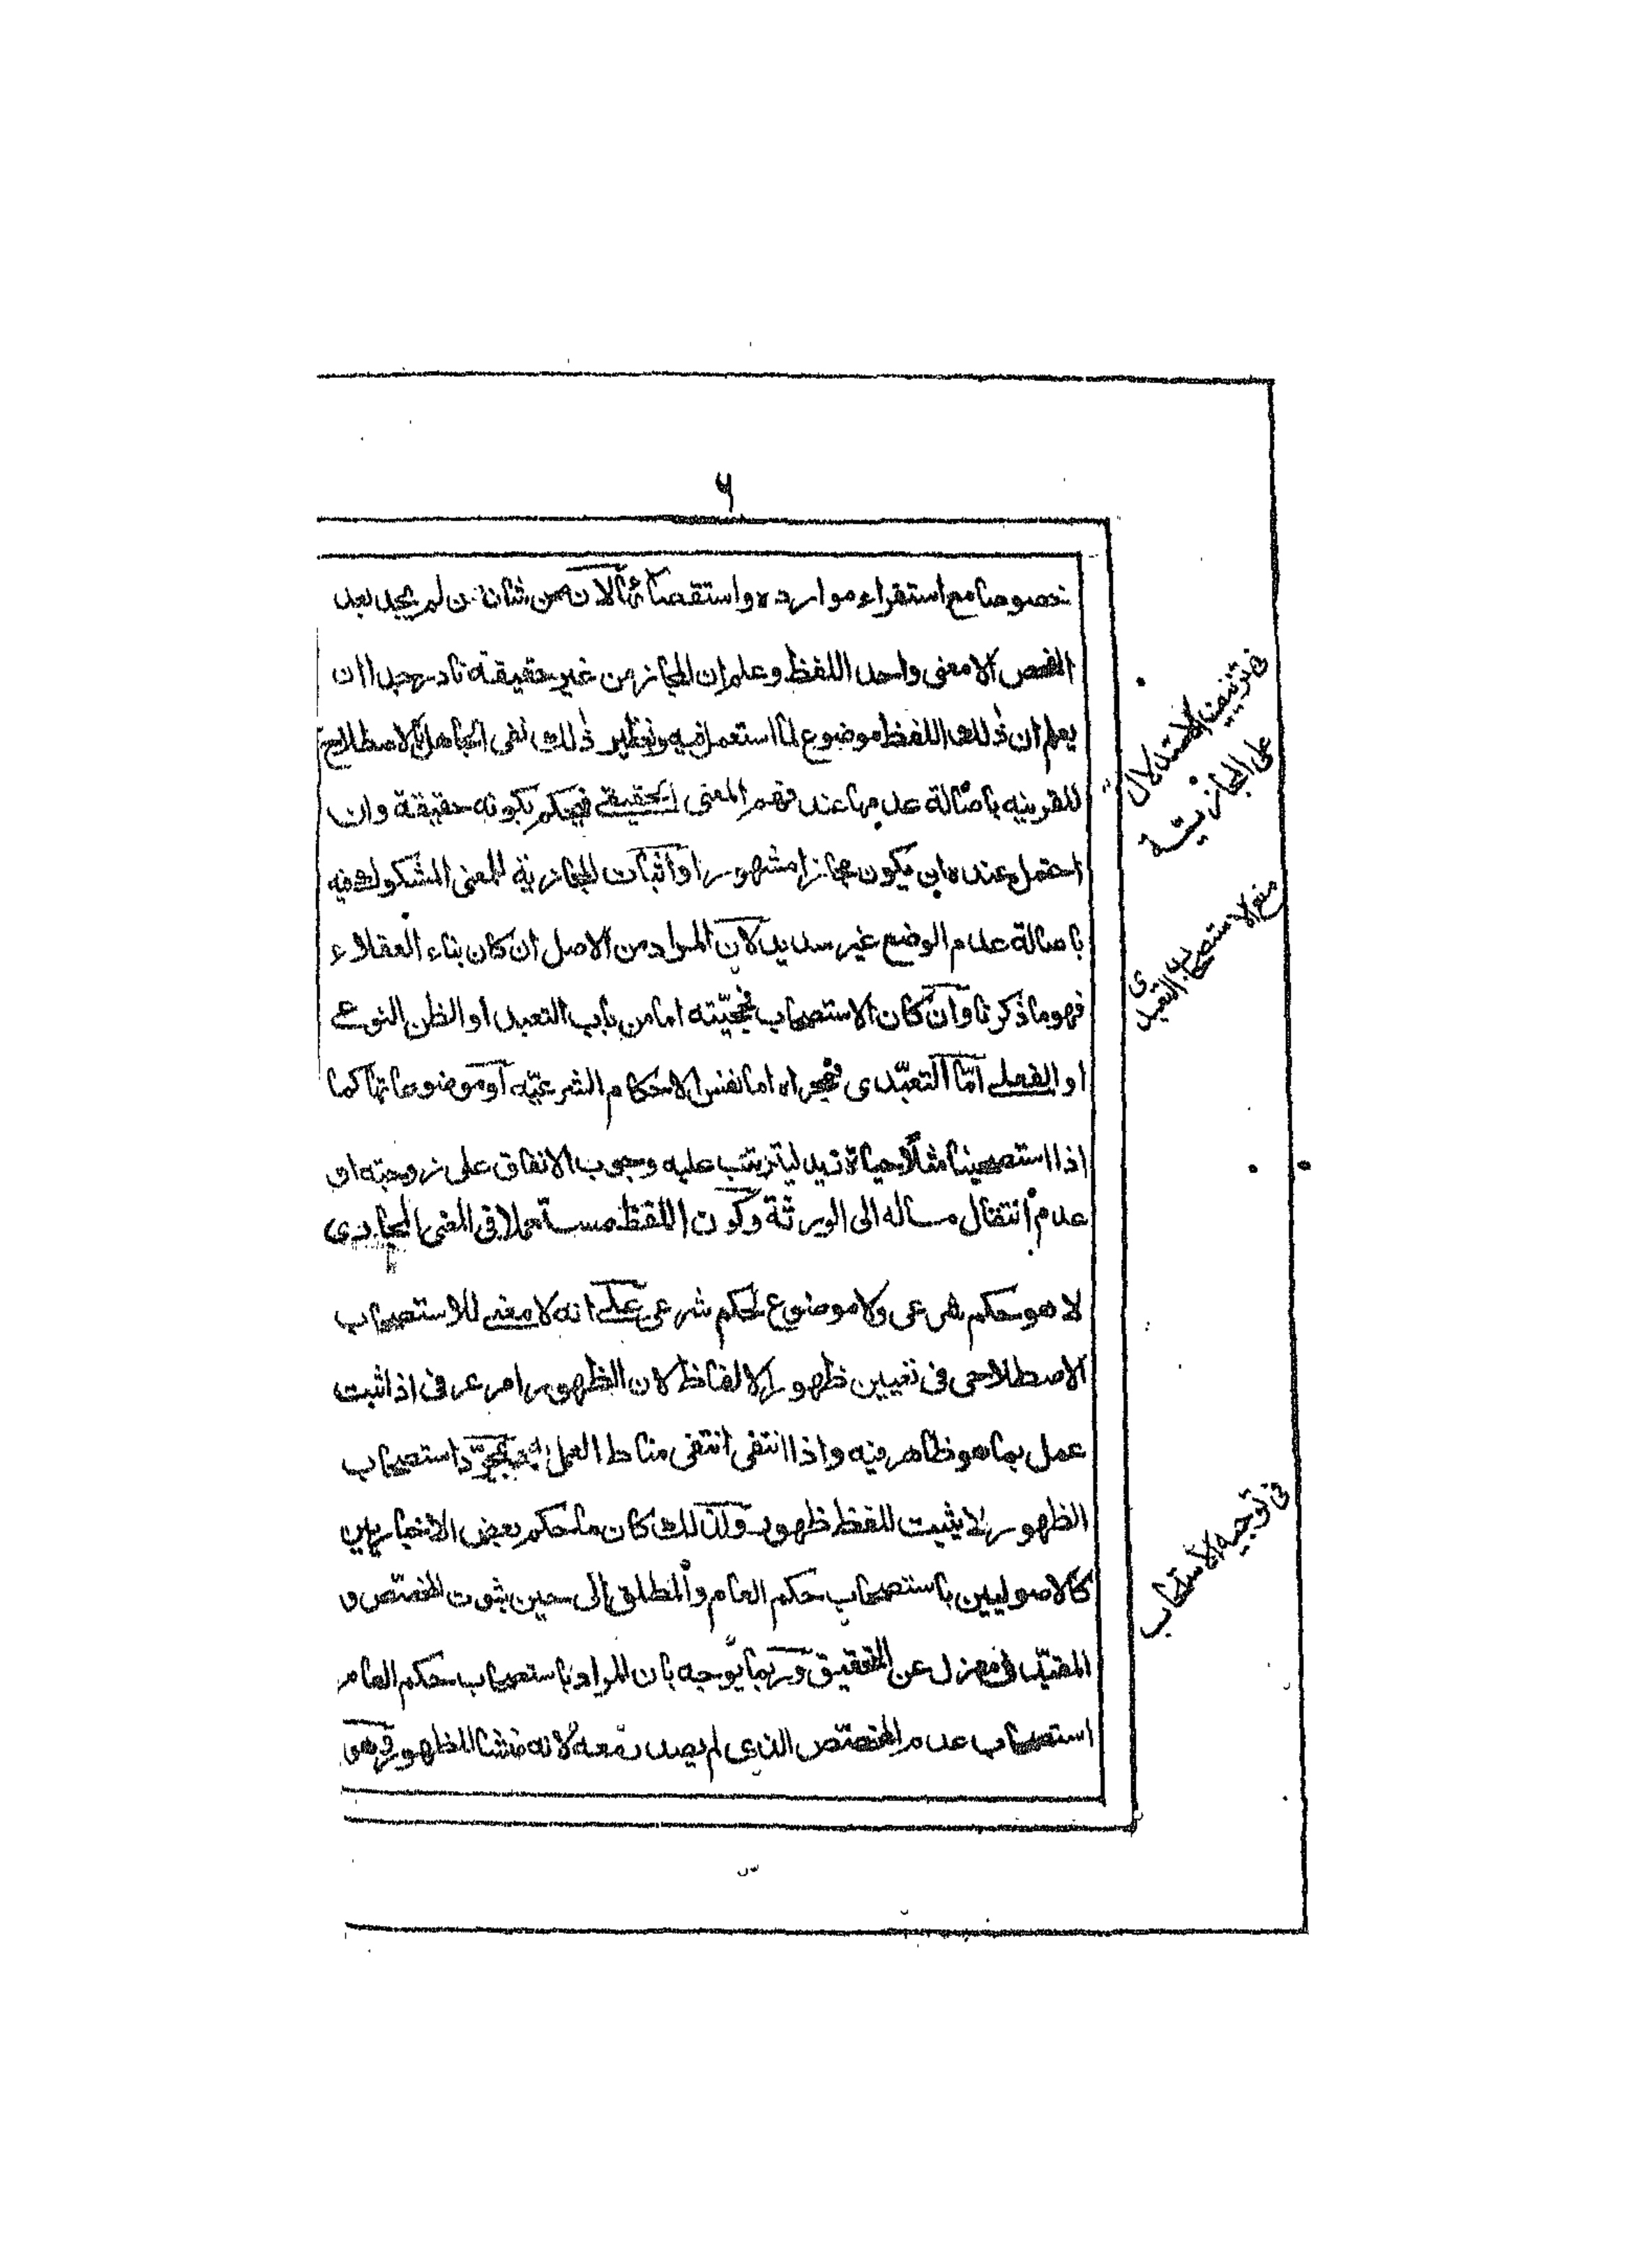 ٦
خصوصا مع استقراء موارده واستقصائه الان من شان من لم يجد بعد
الفحص الا معنى واحد اللفظ وعلم ان المجاز من غير حقيقة نادر جدا ان
يعلم ان ذلك اللفظ موضوع لما استعمل فيه ونظير ذلك نفى الجاهل بالاصطلاح
للقرينه باصالة عدمها عند فهم المعنى الحقيقے فيحكم بكونه حقيقة وان
احتمل عنده ان يكون مجازا مشهورا واثبات المجازية للمعنى المشكوك فيه
باصالة عدم الوضع غير سديد لان المراد من الاصل ان كان بناء العقلاء
فهو ما ذكرنا وان كان الاستصحاب فحجيّته اما من باب التعبد او الظن النوعے
او الفعلے امّا التعبّدى فمجراه اما نفس الاحكام الشرعيّه او موضوعاتها كما
اذا استصحبنا مثلًا حياة زيد ليترتب عليه وجوب الانفاق على زوجته او
عدم انتقال ماله الى الورثة وكون اللفظ مستعملا فى المعنى المجازى
لا هو حكم شرعى ولا موضوع لحكم شرعى علے انه لا معنے للاستصحاب
الاصطلاحى فى تعيين ظهور الالفاظ لان الظهور امر عرفى اذا ثبت
عمل بما هو ظاهر فيه واذا انتفى انتفى مناط العمل به فبمجرّد استصحاب
الظهور لا يثبت للفظ ظهور ولذلك كان ما حكم بعض الاخباريين
كالاصوليين باستصحاب حكم العام والمطلق الى حين ثبوت المخصّص و
المقيّد فى معزل عن التحقيق وربما يوجه بان المراد باستصحاب حكم العام
استصحاب عدم المخصّص الذى لم يصدر معه لانه منشا للظهور فهو
فى تزييف الاستدلال
على المجازيّة
منع الاستصحاب
التعبدى
فى توجيه الاستصحاب